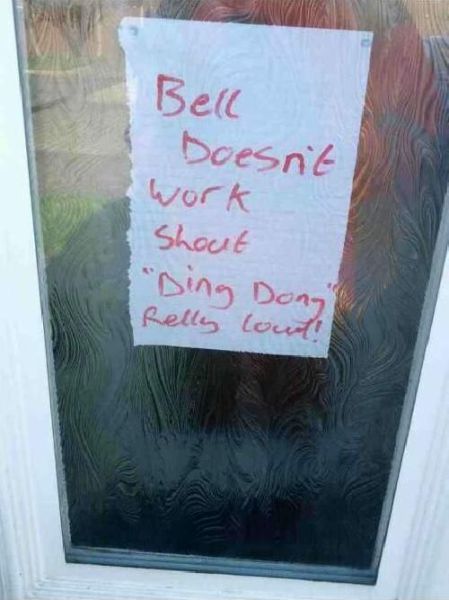 Bell
Doesn't
work
Shout
"Ding Dong"
Relly loud!